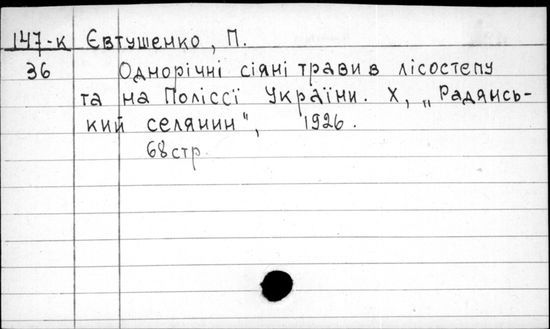 147-к Євтушенко, П.
36 Однорічні сіяні трави в лісостепу
та на Поліссї України. Х, „Радянсь-
кий селянин", 1926.
68 стр.